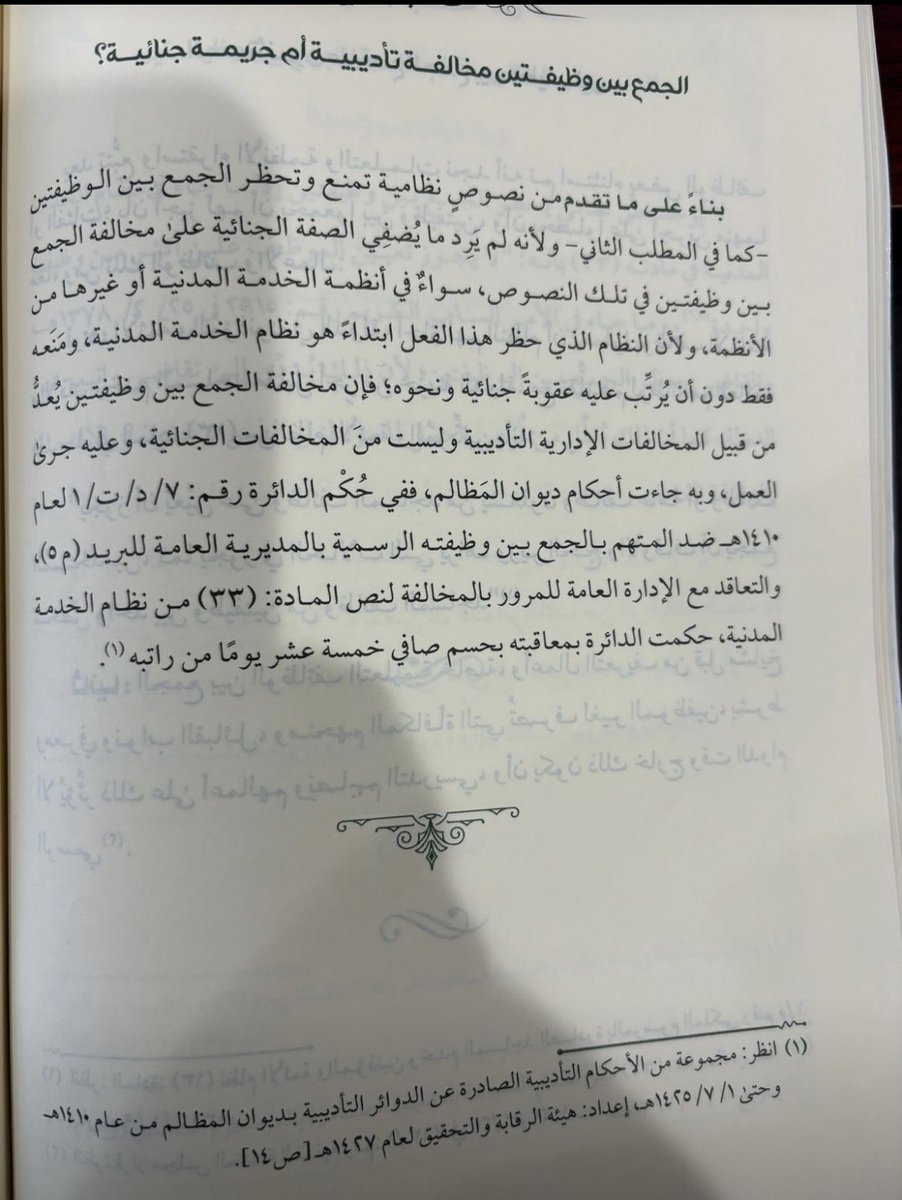 الجمع بين وظيفتين مخالفة تأديبية أم جريمة جنائية؟
بناءً على ما تقدم من نصوصٍ نظامية تمنع وتحظر الجمع بين الوظيفتين
-كما في المطلب الثاني- ولأنه لم يَرِد ما يُضفِي الصفة الجنائية علىٰ مخالفة الجمع
بين وظيفتين في تلك النصوص، سواءٌ في أنظمة الخدمة المدنية أو غيرها من
الأنظمة، ولأن النظام الذي حظر هذا الفعل ابتداءً هو نظام الخدمة المدنية، ومَنَعه
فقط دون أن يُرتِّب عليه عقوبةً جنائية ونحوه؛ فإن مخالفة الجمع بين وظيفتين يُعدُّ
من قبيل المخالفات الإدارية التأديبية وليست منَ المخالفات الجنائية، وعليه جرىٰ
العمل، وبه جاءت أحكام ديوان المَظالم، ففي حُكْم الدائرة رقم: ٧/ د/ ت/ ١ لعام
١٤١٠هـ ضد المتهم بالجمع بين وظيفته الرسمية بالمديرية العامة للبريد (م ٥)،
والتعاقد مع الإدارة العامة للمرور بالمخالفة لنص المادة: (٣٣) من نظام الخدمة
المدنية، حكمت الدائرة بمعاقبته بحسم صافي خمسة عشر يومًا من راتبه (١).
(١) انظر: مجموعة من الأحكام التأديبية الصادرة عن الدوائر التأديبية بديوان المظالم من عام ١٤١٠هـ
وحتىٰ ١/ ٧/ ١٤٢٥هـ، إعداد: هيئة الرقابة والتحقيق لعام ١٤٢٧هـ [ص ١٤].